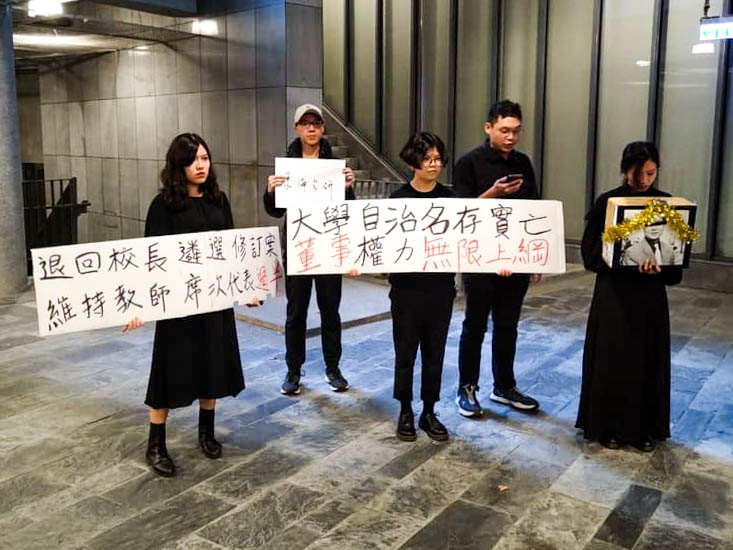 退回校長遴選修訂案
維持教師席次代表過半
大學自治名存實亡
董事權力無限上綱